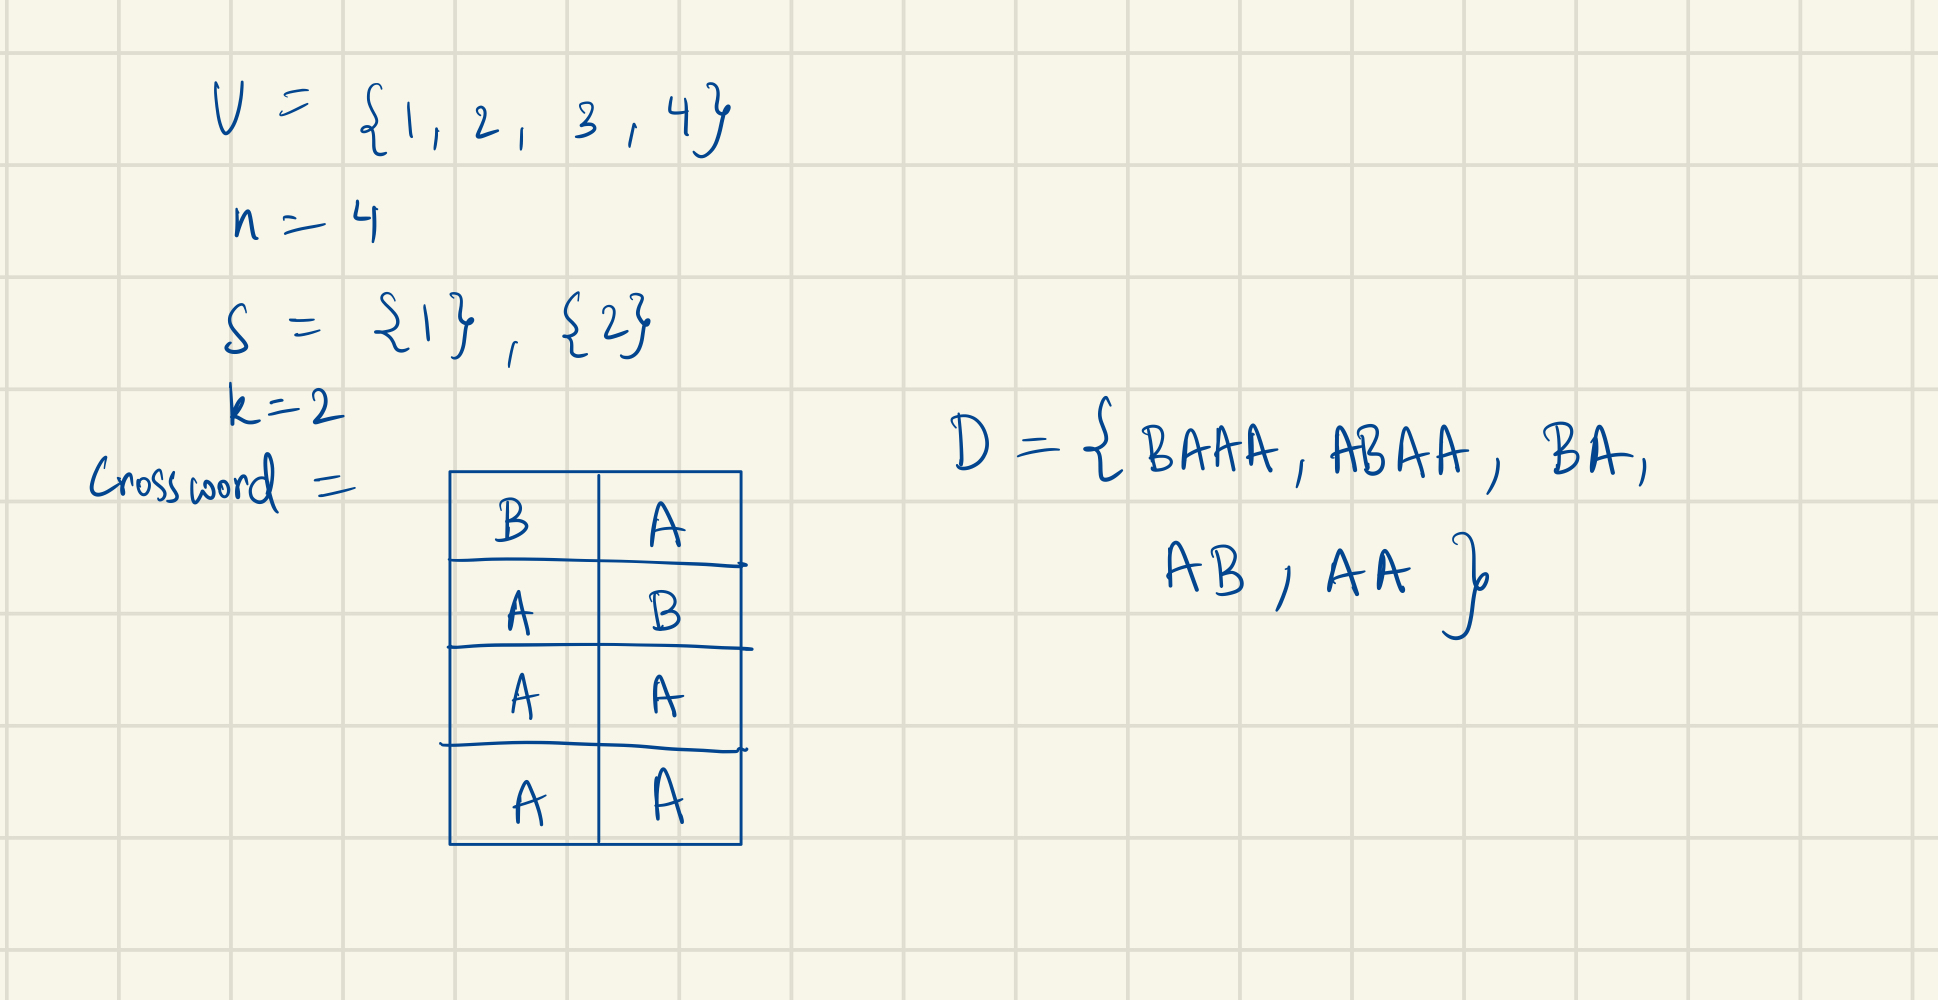 U = {1, 2, 3, 4}
n = 4
S = {1}, {2}
k = 2
Crossword =
B A
A B
A A
A A
D = { BAAA, ABAA, BA,
AB, AA }